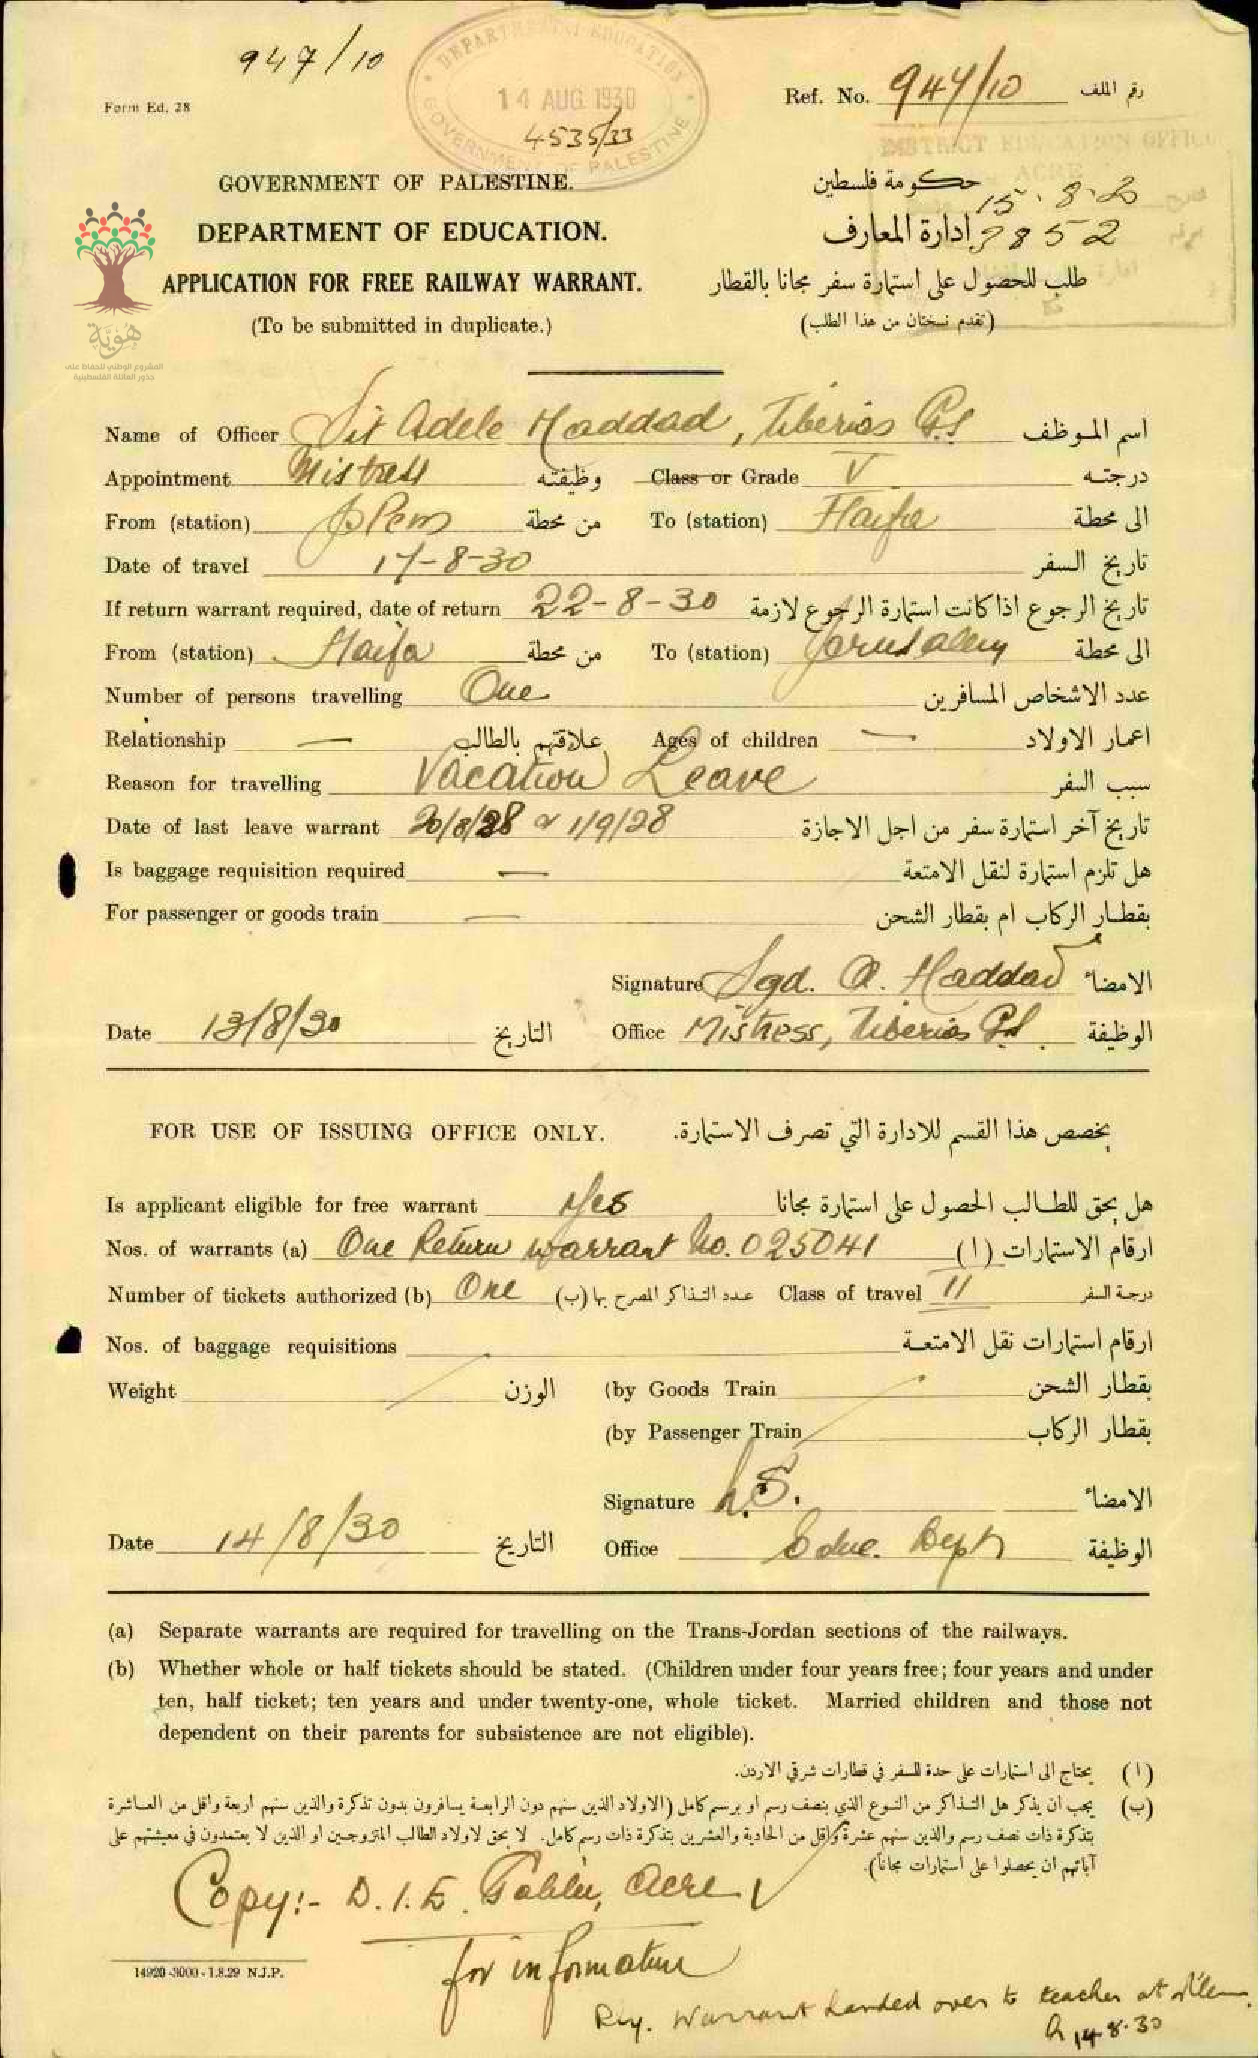 947/10
DEPARTMENT OF EDUCATION
14 AUG 1930
4535/33
GOVERNMENT OF PALESTINE
Form Ed. 28
Ref. No. 947/10 رقم الملف
DISTRICT EDUCATION OFFICE
ACRE
15.8.30
2852
GOVERNMENT OF PALESTINE. حكومة فلسطين
DEPARTMENT OF EDUCATION. ادارة المعارف
APPLICATION FOR FREE RAILWAY WARRANT. طلب للحصول على استمارة سفر مجانا بالقطار
(To be submitted in duplicate.) (تقدم نسختان من هذا الطلب)
هُويَّة
المشروع الوطني للحفاظ على
جذور العائلة الفلسطينية
Name of Officer Sit Adele Haddad, Tiberias G.S اسم الموظف
Appointment Mistress وظيفته Class or Grade V درجته
From (station) J'lem من محطة To (station) Haifa الى محطة
Date of travel 17-8-30 تاريخ السفر
If return warrant required, date of return 22-8-30 تاريخ الرجوع اذا كانت استمارة الرجوع لازمة
From (station) Haifa من محطة To (station) Jerusalem الى محطة
Number of persons travelling One عدد الاشخاص المسافرين
Relationship — علاقتهم بالطالب Ages of children — اعمار الاولاد
Reason for travelling Vacation Leave سبب السفر
Date of last leave warrant 20/8/28 & 1/9/28 تاريخ آخر استمارة سفر من اجل الاجازة
Is baggage requisition required — هل تلزم استمارة لنقل الامتعة
For passenger or goods train — بقطار الركاب ام بقطار الشحن
Signature Sgd. A. Haddad الامضاء
Date 13/8/30 التاريخ Office Mistress, Tiberias G.S. الوظيفة
FOR USE OF ISSUING OFFICE ONLY. يخصص هذا القسم للادارة التي تصرف الاستمارة.
Is applicant eligible for free warrant Yes هل يحق للطالب الحصول على استمارة مجانا
Nos. of warrants (a) One Return warrant No. 025041 ارقام الاستمارات (ا)
Number of tickets authorized (b) One عدد التذاكر المصرح بها (ب) Class of travel II درجة السفر
Nos. of baggage requisitions ارقام استمارات نقل الامتعة
Weight الوزن (by Goods Train بقطار الشحن
(by Passenger Train بقطار الركاب
Signature L.S. الامضاء
Date 14/8/30 التاريخ Office Educ. Dept الوظيفة
(a) Separate warrants are required for travelling on the Trans-Jordan sections of the railways.
(b) Whether whole or half tickets should be stated. (Children under four years free; four years and under
ten, half ticket; ten years and under twenty-one, whole ticket. Married children and those not
dependent on their parents for subsistence are not eligible).
(ا) يحتاج الى استمارات على حدة للسفر في قطارات شرقي الاردن.
(ب) يجب ان يذكر هل التذاكر من النوع الذي بنصف رسم او برسم كامل (الاولاد الذين سنهم دون الرابعة يسافرون بدون تذكرة والذين سنهم اربعة واقل من العاشرة
بتذكرة ذات نصف رسم والذين سنهم عشرة واقل من الحادية والعشرين بتذكرة ذات رسم كامل. لا يحق لاولاد الطالب المتزوجين او الذين لا يعتمدون في معيشتهم على
آبائهم ان يحصلوا على استمارات مجاناً).
Copy:- D.I.E. Galilee, Acre
for information
14920-3000-1.8.29 N.J.P.
Rly. Warrant handed over to teacher at J'lem.
14.8.30